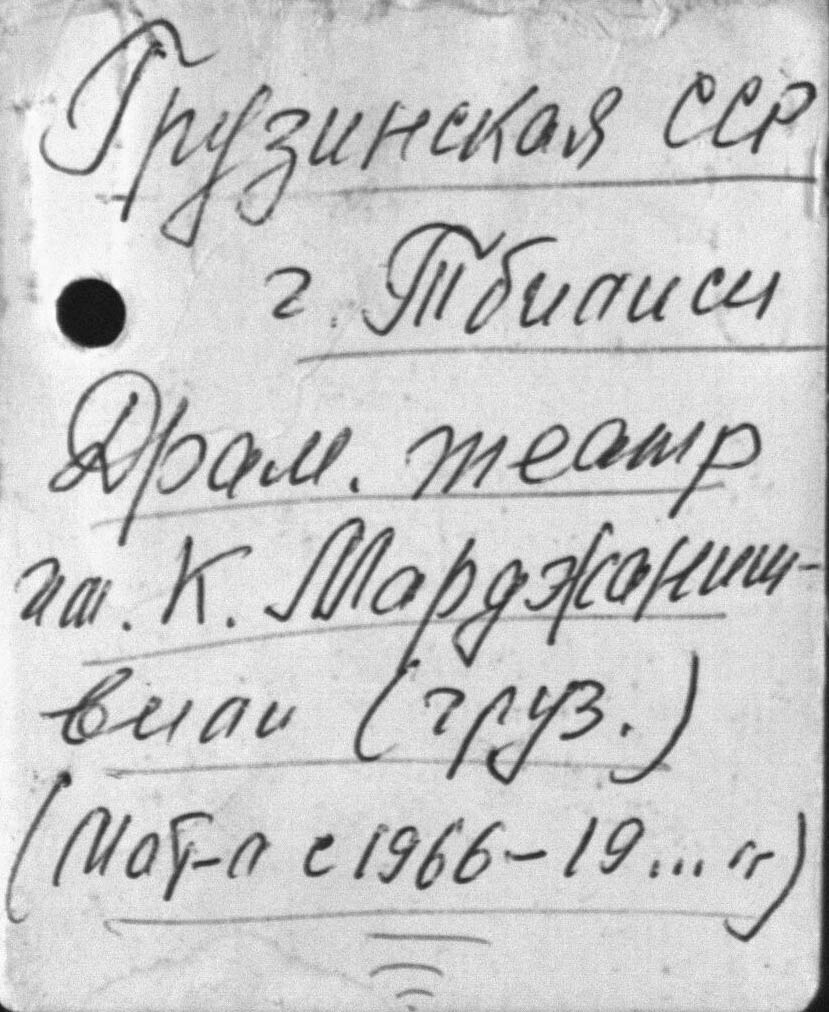 Грузинская ССР
г. Тбилиси
Драм. театр
им. К. Марджаниш-
вили (груз.)
(Мат-л с 1966 – 19... гг)